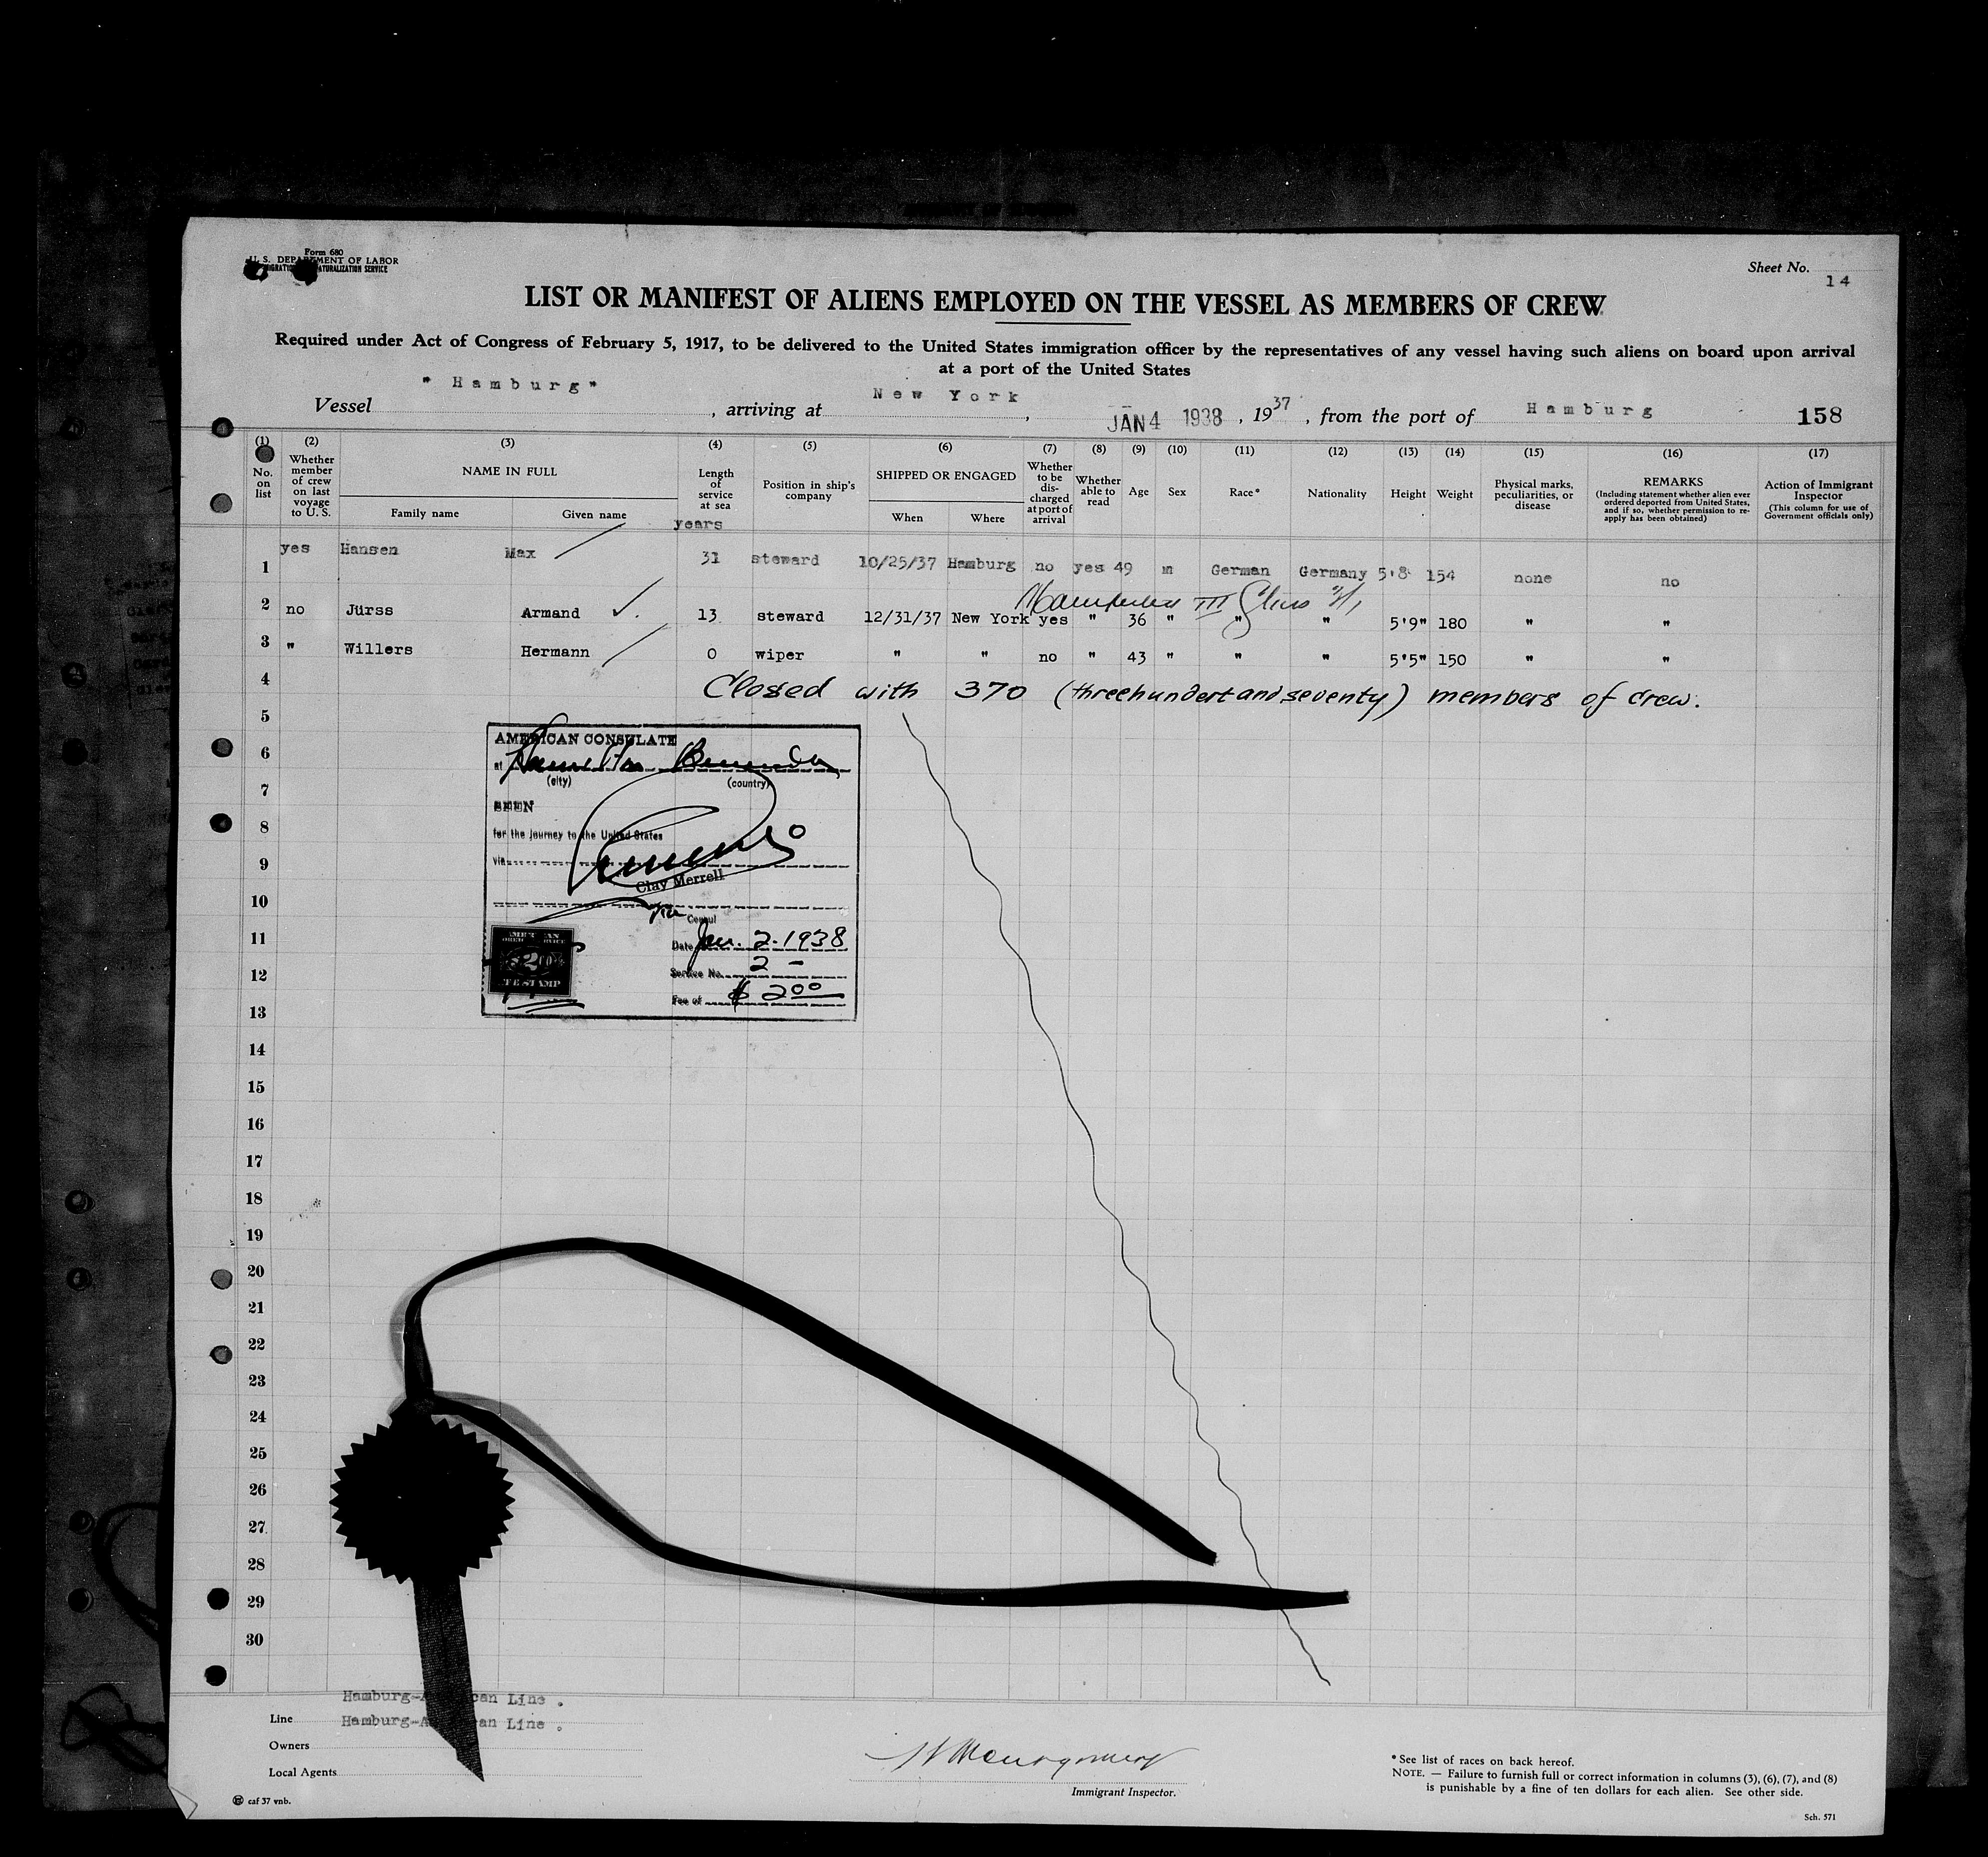 Form 680
U. S. DEPARTMENT OF LABOR
IMMIGRATION AND NATURALIZATION SERVICE
Sheet No. 14
LIST OR MANIFEST OF ALIENS EMPLOYED ON THE VESSEL AS MEMBERS OF CREW
Required under Act of Congress of February 5, 1917, to be delivered to the United States immigration officer by the representatives of any vessel having such aliens on board upon arrival
at a port of the United States
Vessel "Hamburg", arriving at New York, JAN 4 1938, 1937, from the port of Hamburg 158
(1) (2) (3) (4) (5) (6) (7) (8) (9) (10) (11) (12) (13) (14) (15) (16) (17)
No. on list
Whether member of crew on last voyage to U. S.
NAME IN FULL
Family name
Given name
Length of service at sea
years
Position in ship's company
SHIPPED OR ENGAGED
When
Where
Whether to be discharged at port of arrival
Whether able to read
Age
Sex
Race*
Nationality
Height
Weight
Physical marks, peculiarities, or disease
REMARKS
(Including statement whether alien ever ordered deported from United States, and if so, whether permission to reapply has been obtained)
Action of Immigrant Inspector
(This column for use of Government officials only)
1 yes Hansen Max 31 steward 10/25/37 Hamburg no yes 49 m German Germany 5'8 154 none no
2 no Jürss Armand 13 steward 12/31/37 New York yes " 36 " " " 5'9" 180 " "
3 " Willers Hermann 0 wiper " " no " 43 " " " 5'5" 150 " "
4 Closed with 370 (threehundert and seventy) members of crew.
5
6
7
8
9
10
11
12
13
14
15
16
17
18
19
20
21
22
23
24
25
26
27
28
29
30
AMERICAN CONSULATE
at Hamilton Bermuda
(city) (country)
SEEN
for the journey to the United States
via
Clay Merrell
Vice Consul
Date Jan. 2. 1938
Service No. 2 –
Fee of $ 2 00
Hamburg-American Line.
Line Hamburg-American Line.
Owners
Local Agents
Immigrant Inspector.
* See list of races on back hereof.
NOTE. — Failure to furnish full or correct information in columns (3), (6), (7), and (8)
is punishable by a fine of ten dollars for each alien. See other side.
caf 37 vnb.
Sch. 571